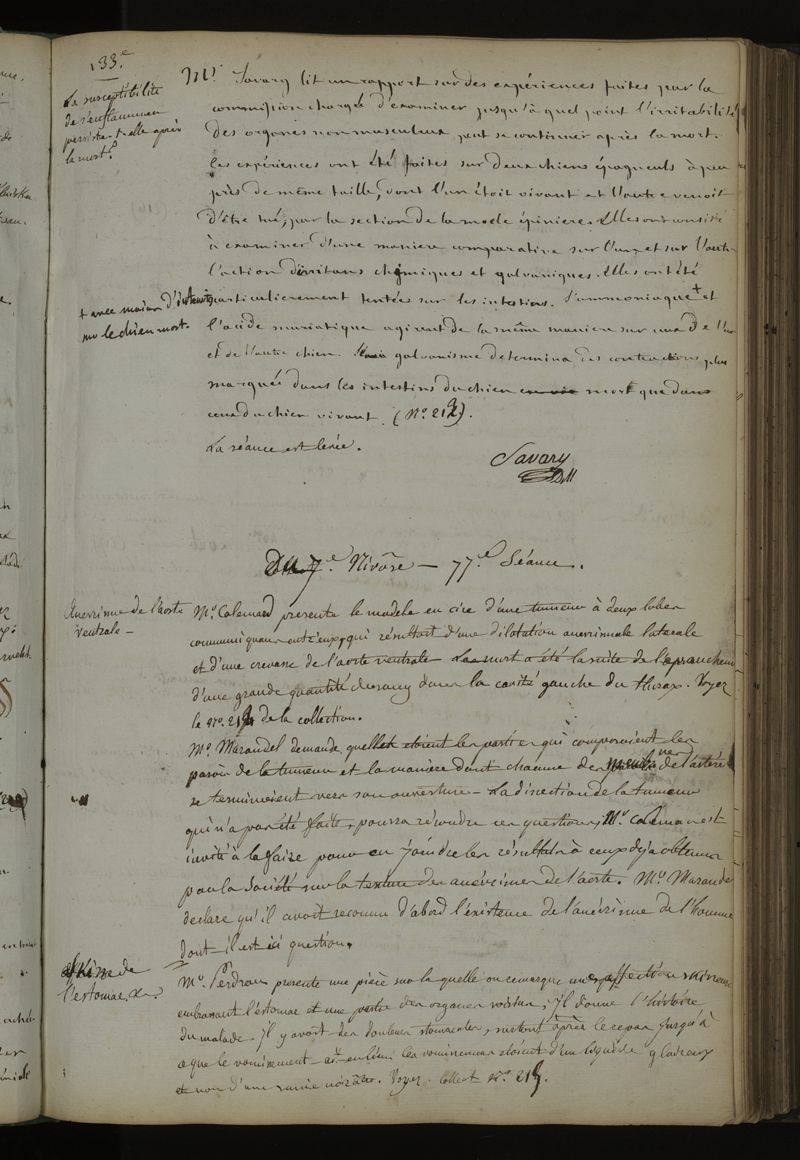 133.e
La susceptibilité
de s'enflammer
persiste-t-elle après
la mort?
Mr. Savary lit un rapport sur des expériences faites par la
commission chargée d'examiner jusqu'à quel point l'irritabilité
des organes non musculeux peut se continuer après la mort.
les expériences ont été faites sur deux chiens épagneuls à peu
près de même taille, dont l'un étoit vivant et l'autre venoit
d'être tué, par la section de la moele épiniere. Elles ont consisté
à examiner d'une maniere comparative sur l'un et sur l'autre
l'action d'irritans chymiques et galvaniques. Elles ont été
particulierement tentées sur les intestins. l'ammoniaque + et
+ avec moins d'intensité
sur le chien mort.
l'acide muriatique agirent de la même maniere sur ceux de l'un
et de l'autre chien. galvanisme determina des contractions plus
marquées dans les intestins du chien mort que dans
ceux du chien vivant. (No. 212).
La séance est levée.
Savary
DM
Du 7.e Nivôse — 77.e Séance.
Anevrisme de l'aorte
ventrale —
Mr. Calemard presente le modele en cire d'une tumeur à deux lobes
communiquans entr'eux, qui résultoit d'une dilatation anevrismale laterale
et d'une crevasse de l'aorte ventrale. La mort a été la suite de l'épanchement
d'une grande quantité de sang dans la cavité gauche du thorax. Voyez
le No. 213 de la collection.
Mr. Marandel demande quelles étoient les parties qui composoient les
parois de la tumeur et la maniere dont chacune des membranes de l'artère
se terminoient vers son ouverture — La dissection de la tumeur
qui n'a pas été faite, pourra résoudre ces questions, Mr. Calemard est
invité à la faire pour en joindre les résultats à ceux deja obtenus
par la Société sur la texture des anévrismes de l'aorte. Mr. Marandel
declare qu'il avoit reconnu d'abord l'éxistence de l'anévrisme de l'homme
dont il est ici question.
Skirre de
l'estomac, &a
Mr. Perdrau presente une pièce sur la quelle on remarque une affection skirreuse
embrassant l'estomac et une partie des organes voisins, Il donne l'histoire
du malade. Il y avoit des douleurs stomacales, surtout après le repas jusqu'à
ce que le vomissement ait eu lieu; les vomissemens étoient d'un liquide glaireux
et non d'une sanie noirâtre. Voyez collect No. 214.